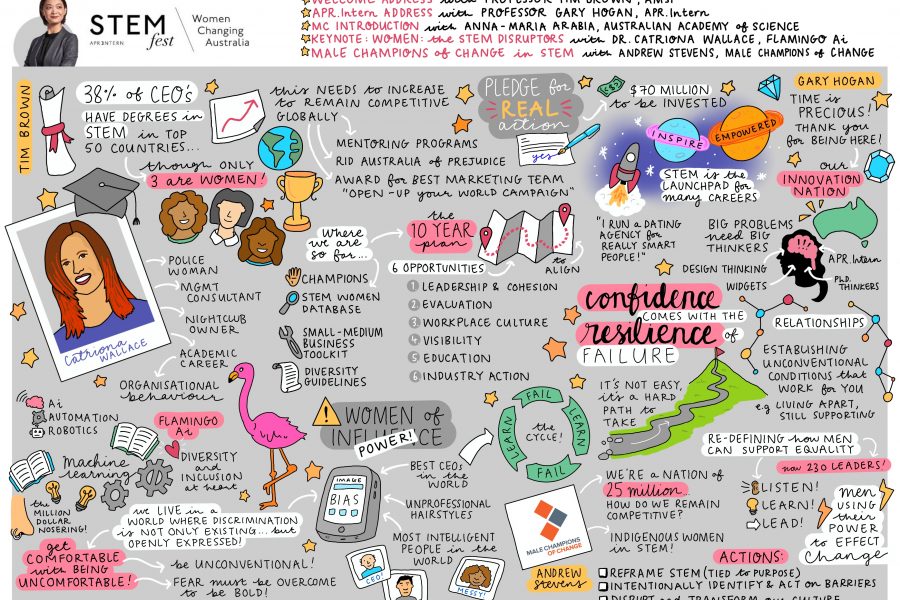 STEM
fest
APR.INTERN
Women
Changing
Australia
WELCOME ADDRESS with PROFESSOR TIM BROWN, AMSI
APR.Intern ADDRESS with PROFESSOR GARY HOGAN, APR.Intern
MC INTRODUCTION with ANNA-MARIA ARABIA, AUSTRALIAN ACADEMY of SCIENCE
KEYNOTE: WOMEN: the STEM DISRUPTORS with DR. CATRIONA WALLACE, FLAMINGO Ai
MALE CHAMPIONS OF CHANGE IN STEM with ANDREW STEVENS, MALE CHAMPIONS of CHANGE
TIM BROWN
38% of CEO's
HAVE DEGREES in
STEM in TOP
50 COUNTRIES...
though ONLY
3 are WOMEN!
this NEEDS to INCREASE
to REMAIN COMPETITIVE
GLOBALLY
MENTORING PROGRAMS
RID AUSTRALIA of PREJUDICE
AWARD for BEST MARKETING TEAM
"OPEN-UP your WORLD CAMPAIGN"
PLEDGE for
REAL
action
yes
$70 MILLION
to be INVESTED
INSPIRE
EMPOWERED
STEM is the
LAUNCHPAD for
many CAREERS
GARY HOGAN
TIME is
PRECIOUS!
THANK YOU
for BEING HERE!
our
INNOVATION
NATION
"I RUN a DATING
AGENCY for
REALLY SMART
PEOPLE!"
BIG PROBLEMS
need BIG
THINKERS
DESIGN THINKING
WIDGETS
APR.Intern
PhD.
THINKERS
Catriona
WALLACE
POLICE
WOMAN
MGMT
CONSULTANT
NIGHTCLUB
OWNER
ACADEMIC
CAREER
ORGANISATIONAL
behaviour
Where
we are
so far...
CHAMPIONS
STEM WOMEN
DATABASE
SMALL-MEDIUM
BUSINESS
TOOLKIT
DIVERSITY
GUIDELINES
the
10 YEAR
plan
to
ALIGN
6 OPPORTUNITIES
1 LEADERSHIP & COHESION
2 EVALUATION
3 WORKPLACE CULTURE
4 VISIBILITY
5 EDUCATION
6 INDUSTRY ACTION
confidence
COMES WITH THE
resilience of
FAILURE
IT'S NOT EASY,
it's a HARD
PATH to
TAKE
RELATIONSHIPS
ESTABLISHING
UNCONVENTIONAL
CONDITIONS that
WORK for YOU
e.g LIVING APART,
STILL SUPPORTING
Ai
AUTOMATION
ROBOTICS
FLAMINGO
Ai
Machine
learning
DIVERSITY
and
INCLUSION
at heart
the
MILLION
DOLLAR
NOSERING!
WOMEN of
INFLUENCE
POWER!
FAIL
LEARN
FAIL
LEARN
the
CYCLE!
IMAGE
BIAS
BEST CEOs
in the
WORLD
UNPROFESSIONAL
HAIRSTYLES
MOST INTELLIGENT
PEOPLE in the
WORLD
CEO?
MESSY!
we LIVE in a
WORLD WHERE DISCRIMINATION
is NOT ONLY EXISTING... but
OPENLY EXPRESSED!
get
COMFORTABLE
with BEING
UNCOMFORTABLE!
be UNCONVENTIONAL!
FEAR must be OVERCOME
to be BOLD!
MALE CHAMPIONS
OF CHANGE
ANDREW
Stevens
WE'RE a NATION of
25 million...
HOW DO WE REMAIN
COMPETITIVE?
INDIGENOUS WOMEN
in STEM!
RE-DEFINING how MEN
CAN SUPPORT EQUALITY
now 230 LEADERS!
LISTEN!
LEARN!
LEAD!
men
USING
their
POWER
to EFFECT
Change
ACTIONS:
REFRAME STEM (TIED to PURPOSE)
INTENTIONALLY IDENTIFY & ACT on BARRIERS
DISRUPT and TRANSFORM our CULTURE